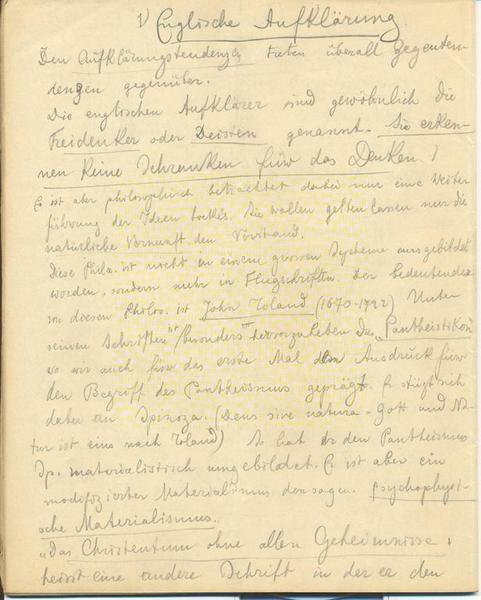 1) Englische Aufklärung.
Den Aufklärungstendenzen treten überall Gegenten-
denzen gegenüber.
Die englischen Aufklärer sind gewöhnlich die
Freidenker oder Deisten genannt. Sie erken-
nen keine Schranken für das Denken.
Es ist aber philosophisch betrachtet dabei nur eine Weiter
führung der Ideen Lockes. Sie wollen gelten lassen nur die
natürliche Vernunft den Verstand.
Diese Philos. ist nicht in einem grossen Systeme ausgebildet
worden, sondern mehr in Flugschriften. Der bedeutendste
von diesen Philos. ist John Toland (1670-1722) Unter
seinen Schriften ist besonders hervorzuheben das "Pantheistikon"
wo wir auch für das erste Mal den Ausdruck für
den Begriff des Pantheismus geprägt. Er stützt sich
dabei an Spinoza. (Deus sive natura - Gott und Na-
tur ist eins nach Toland) So hat er den Pantheismus
Sp. materialistisch umgebildet. Es ist aber ein
modifizierter Materialismus den sogen. psychophysi-
sche Materialismus.
"Das Christentum ohne allen Geheimnisse,
heisst eine andere Schrift in der er den